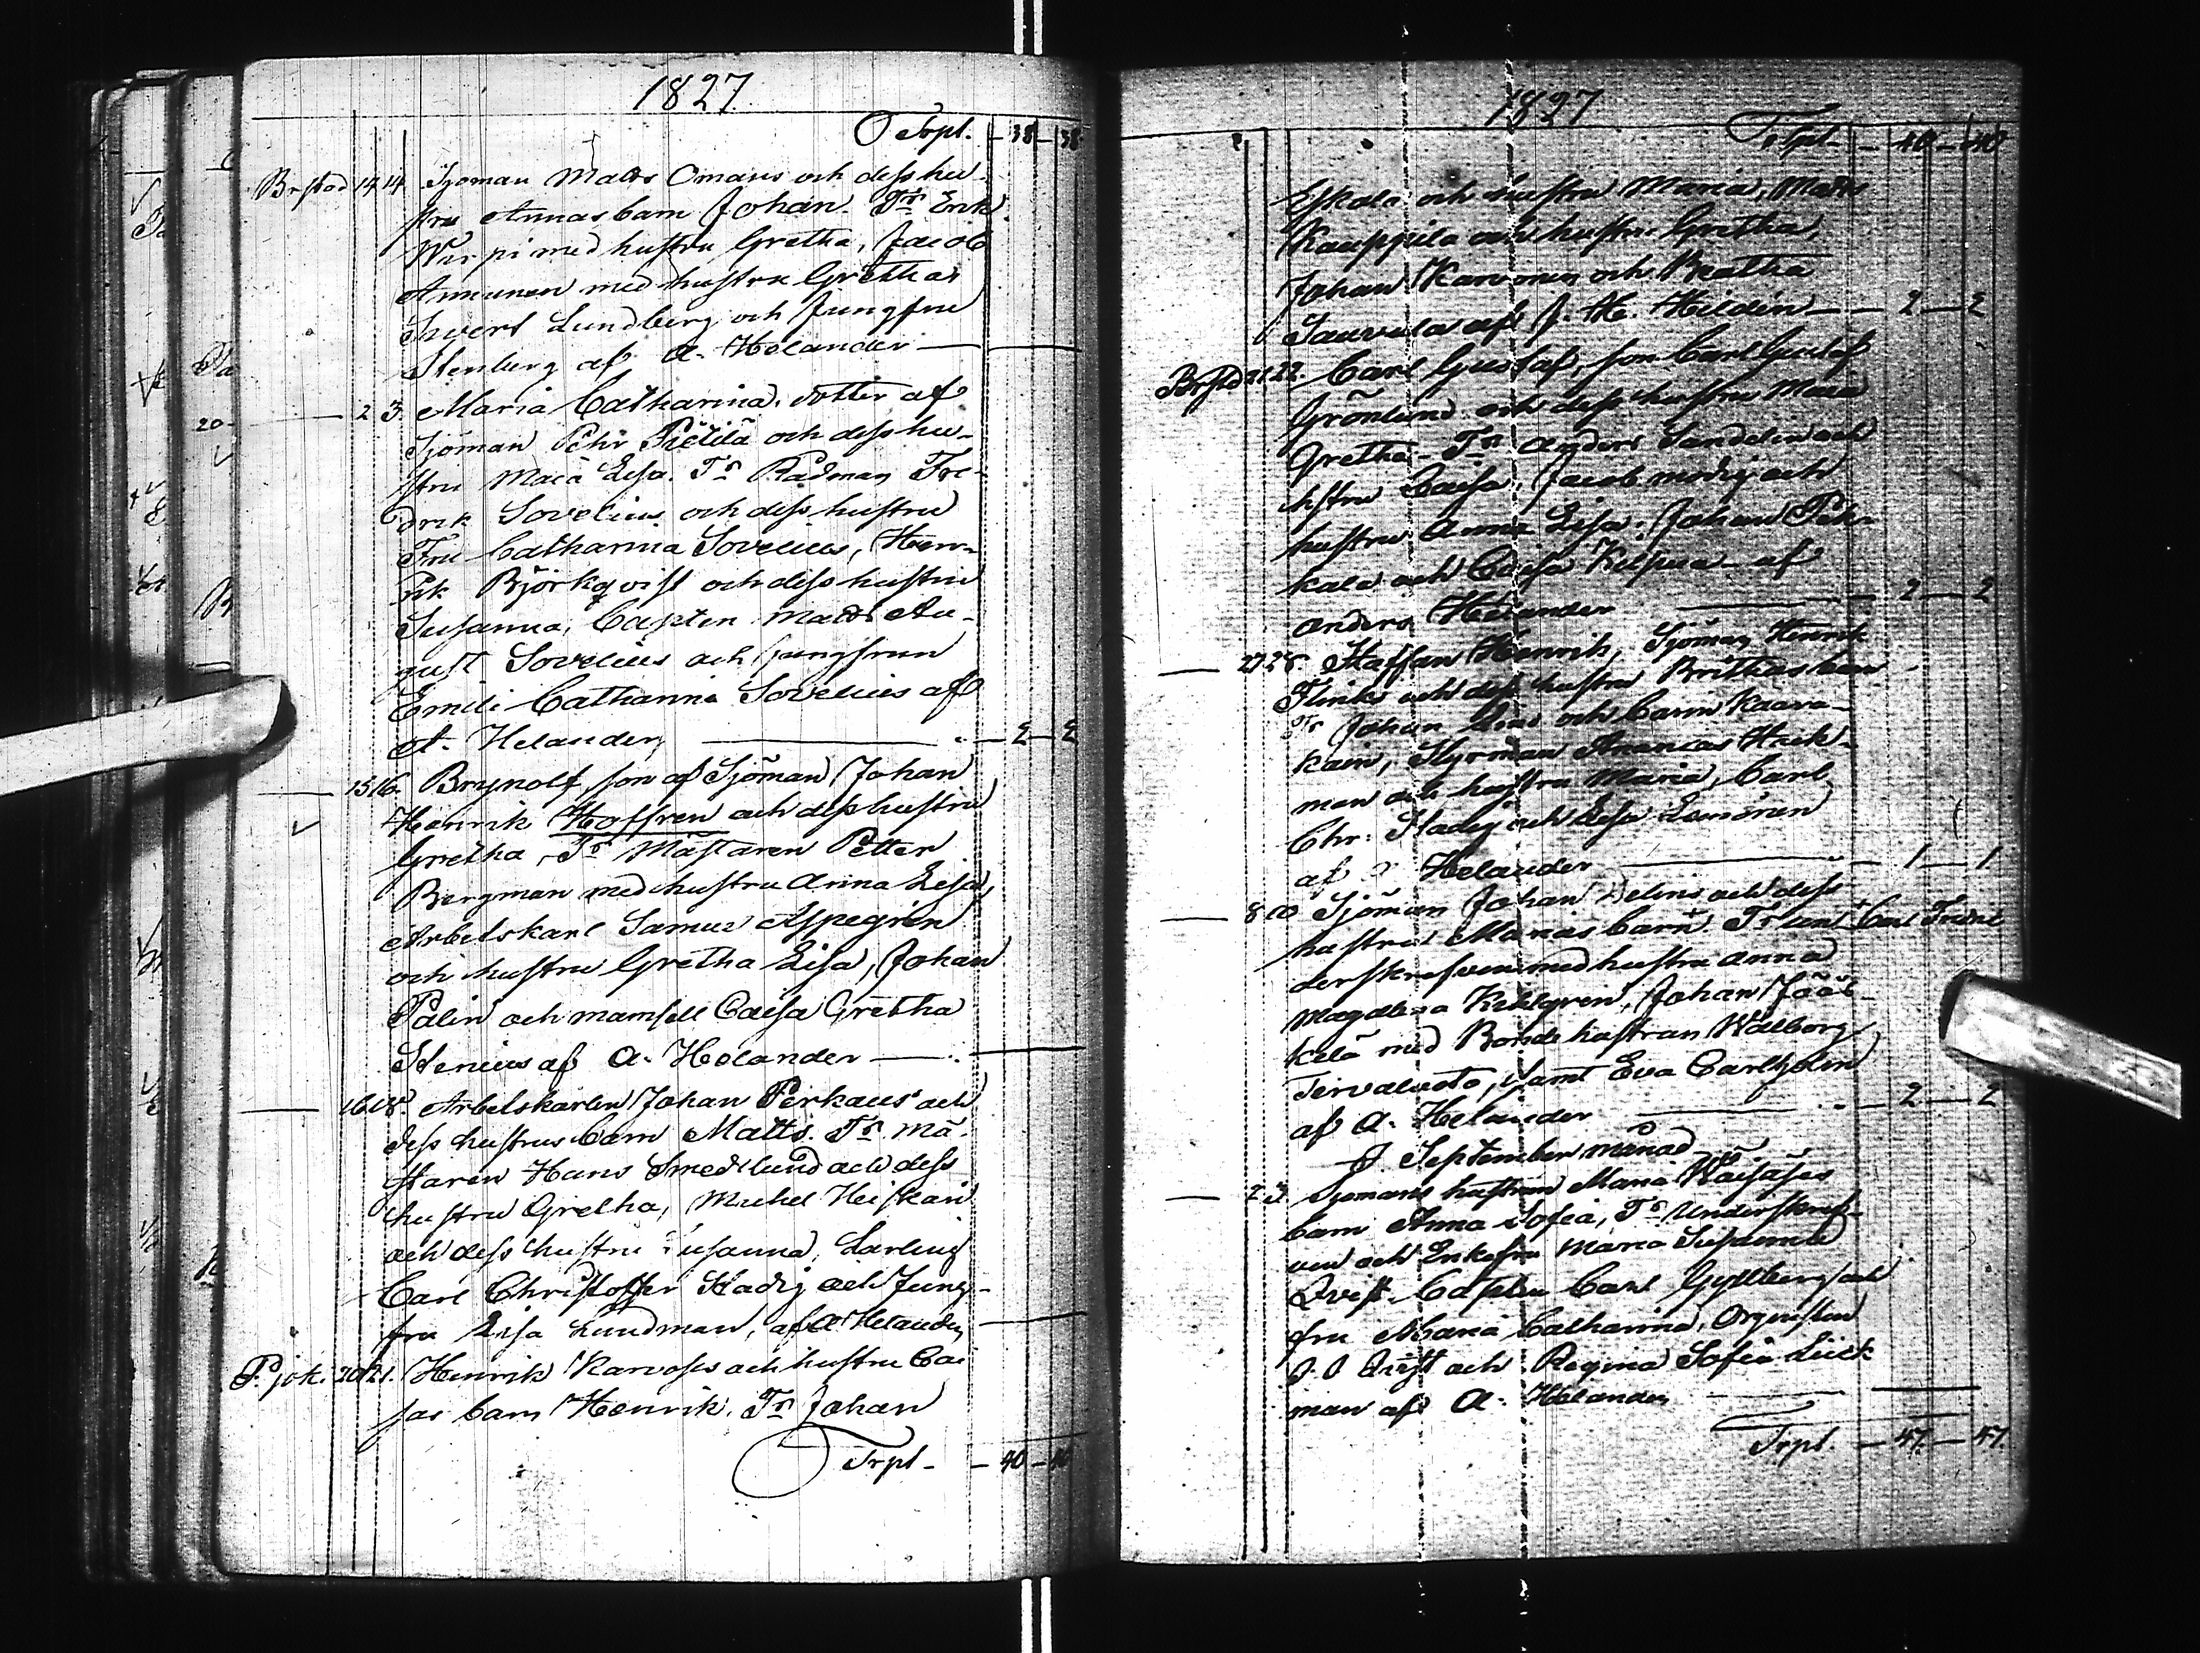 1827
Trpl. 38 38
Br stad 14 14 Sjöman Matts Omans och dess hu-
stru Annas barn Johan. Tr Erik
Wirpi med hustru Gretha, Jacob
Annunen med hustru Grethas
Sivert Lundberg och Jungfru
Stenberg af A. Helander
2 3. Maria Catharina, dotter af
Sjöman Pehr Pietilä och dess hu-
stru Maja Lisa. Tr Rådman Fre-
drik Sovelius och dess hustru
Fru Catharina Sovelius, Hen-
rik Björkqvist och dess hustru
Susanna, Capten Matts Au-
gust Sovelius och jungfrun
Emili Catharina Sovelius af
A. Helander 2 2
15 16. Brynolf, son af Sjöman Johan
Henrik Hoffren och dess hustru
Gretha, Tr Mästaren Petter
Bergman med hustru Anna Lisa,
Arbetskarl Samuel Aspegrén
och hustru Gretha Lisa, Johan
Palin och mamsell Caisa Gretha
Stenius af A. Helander
16 18. Arbetskarlen Johan Perkaus och
dess hustrus barn Matts. Tr Mä-
staren Hans Smedlund och dess
hustru Gretha, Michel Heiskari
och dess hustru Susanna, Lärling
Carl Christoffer Stadig och Jung-
fru Lisa Lundman, af A Helander
P. joki 20 21. Henrik Karvoses och hustru Cai
sas barn Henrik. Tr Johan
Trpl 40 40
1827
Trpl 40 40
Eskola och hustru Maria, Matts
Kauppila och hustru Gretha,
Johan Karvonen och Beatha
Sauvola af J. H. Heldén 2 2
Br std 21 22. Carl Gustaf, son Carl Gustaf
Grönlund och dess hustru Maria
Gretha. Tr Anders Sandelin och
hstru Caisa, Jacob modig och
hustru Anna Lisa. Johan Pehr
kala och Caisa Kilpua af
Anders Helander 2 2
27 28. Staffan Henrik, Sjöman Henrik
Flinks och dess hustru Brithas barn
Tr Johan och Carin Kaara-
kain, Styrman Ananias Huk-
man och hustru Maria, Carl
Chr: Stadig och Lisa Lonsörén
af A Helander 1 1
8 10 Sjöman Johan Delins och dess
hustru Marias barn. Tr un- Carl Fredric
derskrefven med hustru Anna
Magdlena Kellgren, Johan Jääs-
kelä med Bonde hustrun Walborg
Tervaluoto, samt Eva Carlholm
af A. Helander 2 2
J. September månad
2 3. Sjömans hustrun Maria Wäisäses
barn Anna Sofia, Tr Underskref-
ven och Enkefru Maria Susanna
Qvist. Capten Carl Gyllberg och
fru Maria Catharina, Organisten
J. J Qvist och Regina Sofia Lück-
man af A. Helander
Trpl. 47 47.